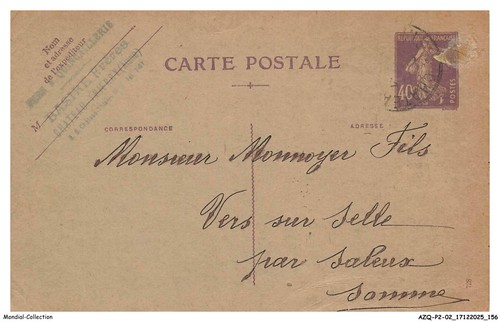 Nom
et adresse
de l'expéditeur
M
QUINCAILLERIE
CARTE POSTALE
REPUBLIQUE FRANÇAISE
40
POSTES
CORRESPONDANCE
ADRESSE
Monsieur Monnoyer Fils
Vers sur Selle
par Saleux
Somme
Mondial-Collection
AZQ-P2-02_17122025_156